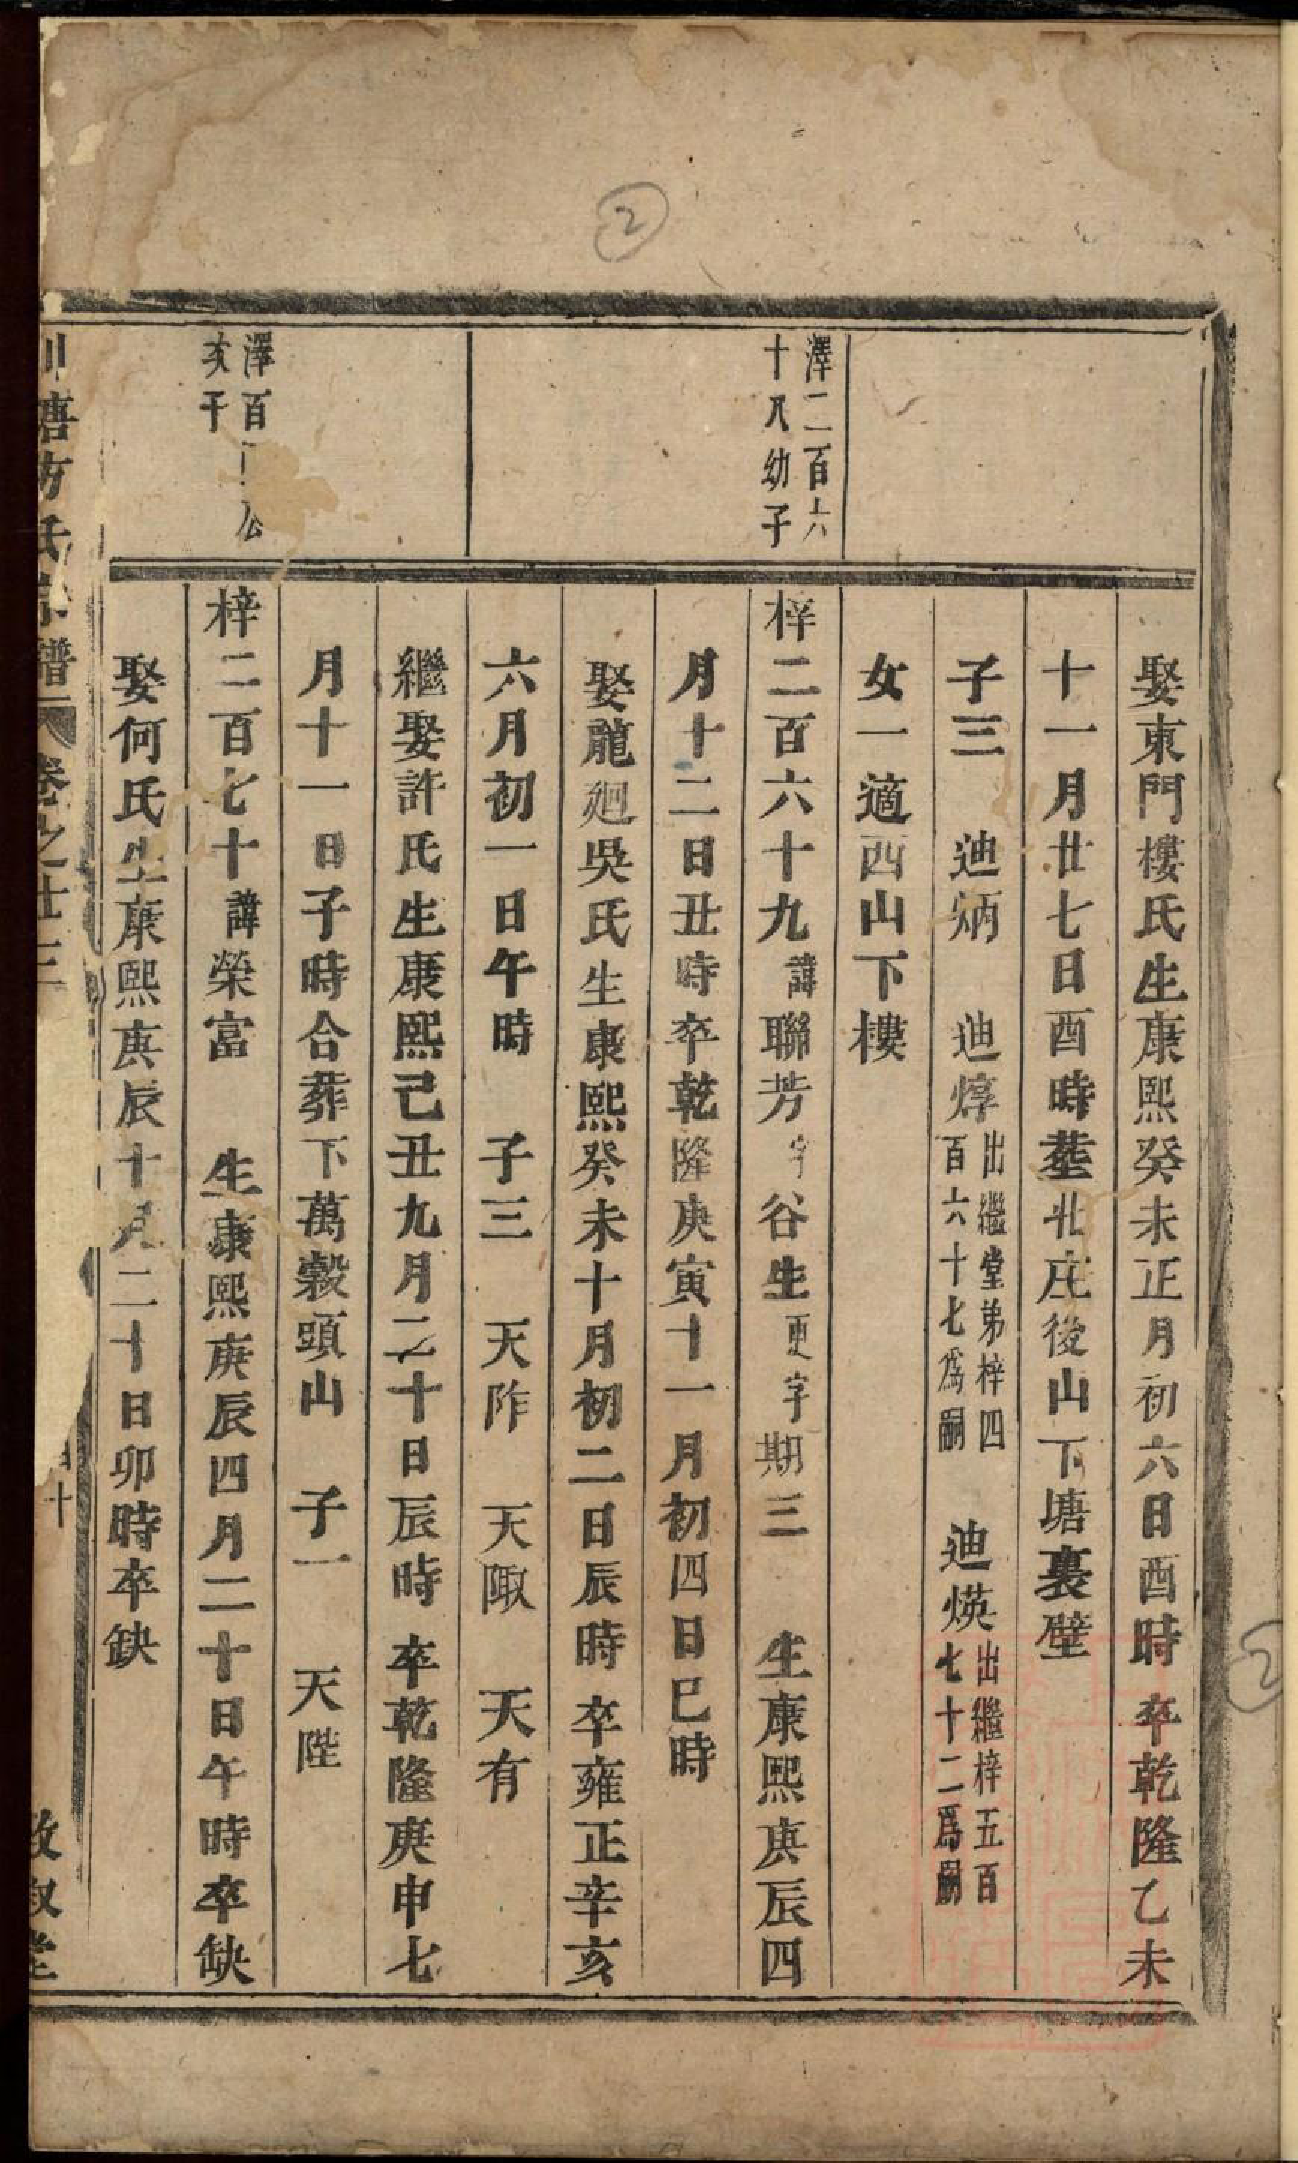 ②
娶東門樓氏生康熙癸未正月初六日酉時 卒乾隆乙未
十一月廿七日酉時葬北庄後山下塘裏壁
子三 迪炳 迪焞出繼堂弟梓四百六十七為嗣 迪煐出繼梓五百七十二爲嗣
女一適西山下樓
澤二百六
十八幼子
梓二百六十九諱聯芳字谷生更字期三 生康熙庚辰四
月十二日丑時卒乾隆庚寅十一月初四日巳時
娶龍廻吳氏生康熙癸未十月初二日辰時 卒雍正辛亥
六月初一日午時 子三 天阼 天陬 天有
繼娶許氏生康熙己丑九月二十日辰時 卒乾隆庚申七
月十一日子時合葬下萬穀頭山 子一 天陛
澤百 公
亥干
梓二百七十諱榮富 生康熙庚辰四月二十日午時卒缺
娶何氏生康熙庚辰十月二十日卯時卒缺
塘方氏宗譜 卷之廿三 四十 敦叙堂
2